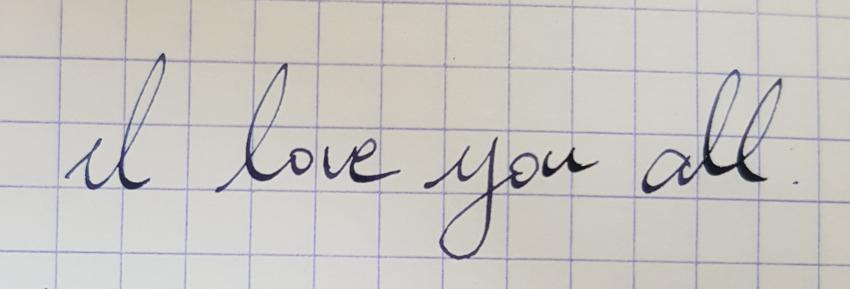 I love you all.